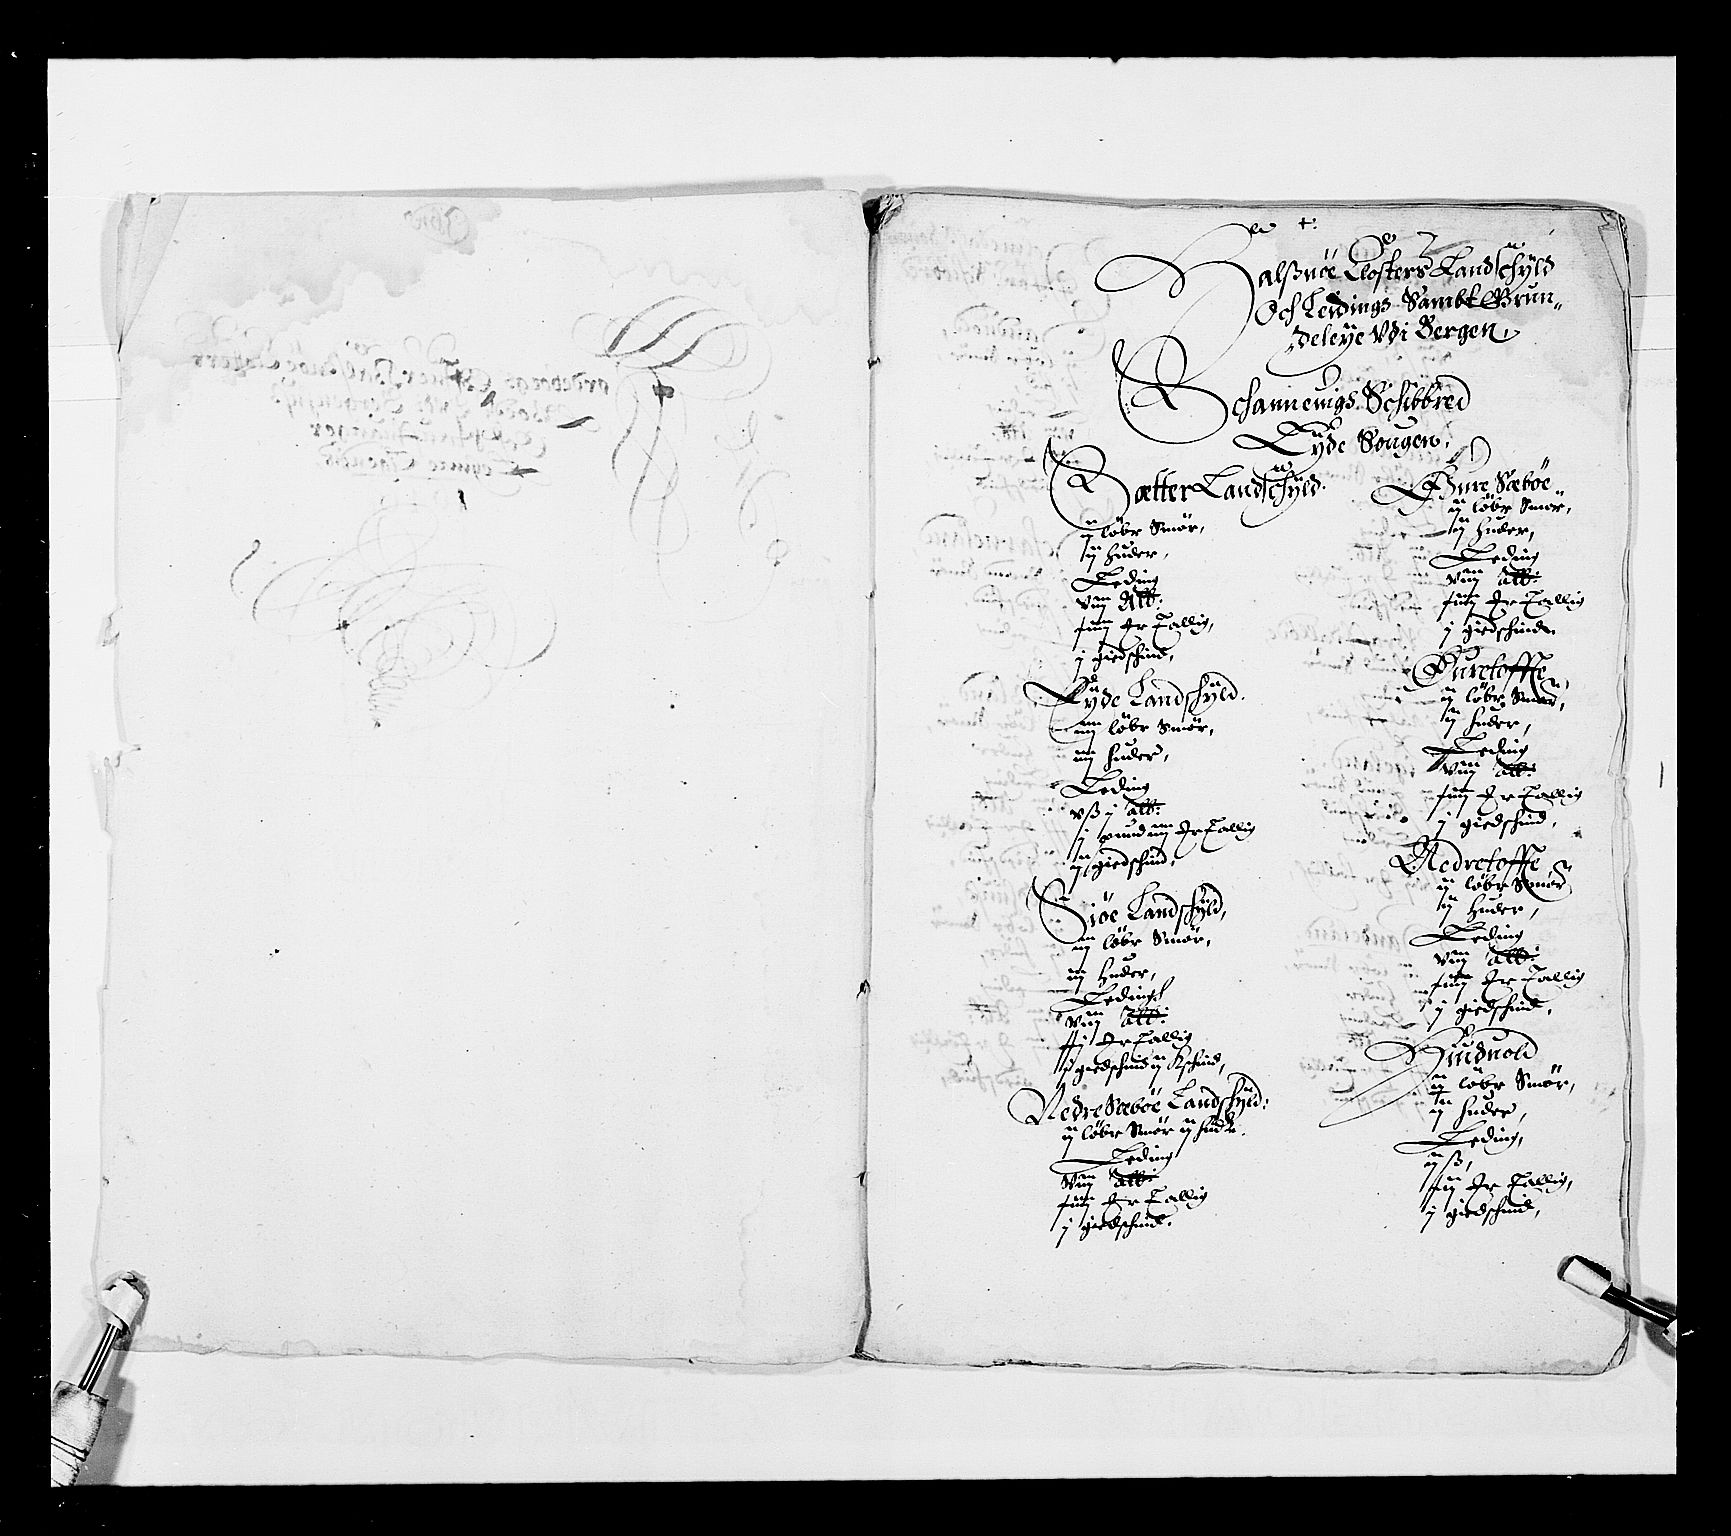 Halßnöe Closters Landschÿld
Och Leidings Sambt Grun„
deleÿe Vdi Bergen,
Schannevigs Schibbred
Eÿde Sougen,
Sætter Landschÿld.
ij löbr Smör,
ij huder,
Leding
viij Alb:
iiij Er Tallig,
j giedschind,
Eÿde Landschÿld.
iiij löbr Smör,
iiij huder,
Leding
vß j alb:
j pund iiij Er Tallig
ij giedschind,
Siöe Landschÿld,
iij löbr Smör,
iij huder,
Leding
viij alb:
Er Tallig
j giedschind ij Kschind,
Nedre Sæböe Landschÿld:
ij löbr Smör ij hudr.
Leding
viij alb:
iiij Er Tallig
j giedschind.
Öure Sæböe
ij löbr Smör,
ij huder,
Leding
viij alb:
iiij Er Tallig
j giedschind
Öuretoffte,
ij löbr Smör,
ij huder,
Leding
viij alb:
iiij Er Tallig
j giedschind,
Nedretoffte
ij löbr Smör
ij huder,
Leding
viij alb:
iiij Er Tallig
j giedschind,
ij löbr Smör,
ij huder,
Leding,
ij ß,
iiij Er Tallig,
j giedschind,